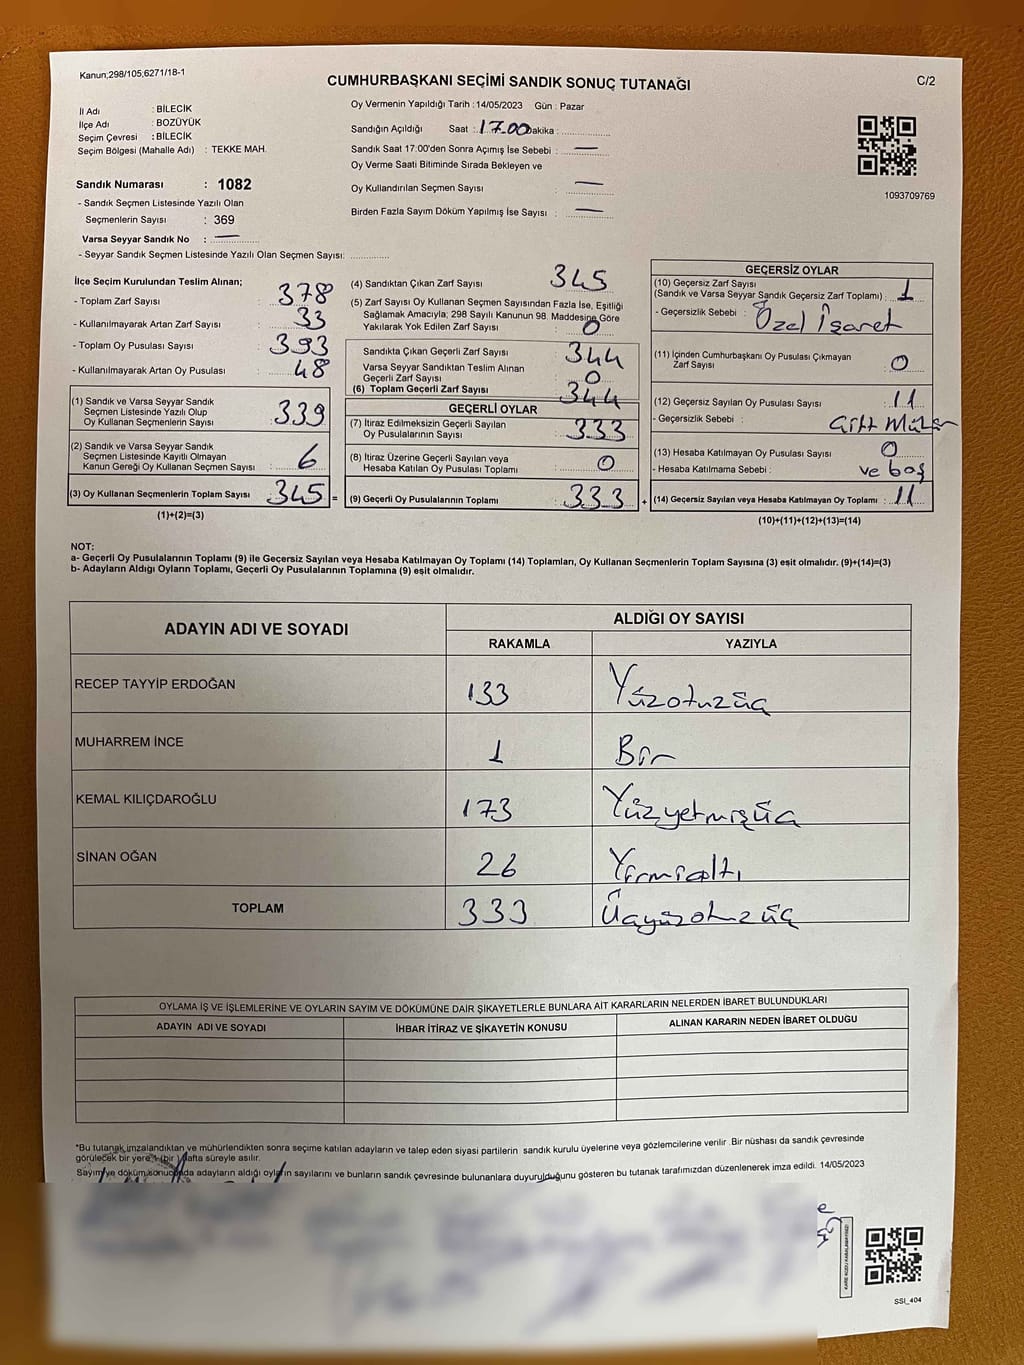 Kanun;298/105;6271/18-1
CUMHURBAŞKANI SEÇİMİ SANDIK SONUÇ TUTANAĞI
C/2
İl Adı : BİLECİK
İlçe Adı : BOZÜYÜK
Seçim Çevresi : BİLECİK
Seçim Bölgesi (Mahalle Adı) : TEKKE MAH.
Sandık Numarası : 1082
- Sandık Seçmen Listesinde Yazılı Olan
Seçmenlerin Sayısı : 369
Varsa Seyyar Sandık No : —
- Seyyar Sandık Seçmen Listesinde Yazılı Olan Seçmen Sayısı: ..............
Oy Vermenin Yapıldığı Tarih : 14/05/2023 Gün : Pazar
Sandığın Açıldığı Saat : 17.00 Dakika : ..............
Sandık Saat 17:00'den Sonra Açımış İse Sebebi : —
Oy Verme Saati Bitiminde Sırada Bekleyen ve
Oy Kullandırılan Seçmen Sayısı : —
Birden Fazla Sayım Döküm Yapılmış İse Sayısı : —
1093709769
İlçe Seçim Kurulundan Teslim Alınan;
- Toplam Zarf Sayısı : 378
- Kullanılmayarak Artan Zarf Sayısı : 33
- Toplam Oy Pusulası Sayısı : 393
- Kullanılmayarak Artan Oy Pusulası : 48
(1) Sandık ve Varsa Seyyar Sandık
Seçmen Listesinde Yazılı Olup
Oy Kullanan Seçmenlerin Sayısı : 339
(2) Sandık ve Varsa Seyyar Sandık
Seçmen Listesinde Kayıtlı Olmayan
Kanun Gereği Oy Kullanan Seçmen Sayısı : 6
(3) Oy Kullanan Seçmenlerin Toplam Sayısı : 345 =
(1)+(2)=(3)
(4) Sandıktan Çıkan Zarf Sayısı : 345
(5) Zarf Sayısı Oy Kullanan Seçmen Sayısından Fazla İse, Eşitliği
Sağlamak Amacıyla; 298 Sayılı Kanunun 98. Maddesine Göre
Yakılarak Yok Edilen Zarf Sayısı : 0
Sandıkta Çıkan Geçerli Zarf Sayısı : 344
Varsa Seyyar Sandıktan Teslim Alınan
Geçerli Zarf Sayısı : 0
(6) Toplam Geçerli Zarf Sayısı : 344
GEÇERLİ OYLAR
(7) İtiraz Edilmeksizin Geçerli Sayılan
Oy Pusulalarının Sayısı : 333
(8) İtiraz Üzerine Geçerli Sayılan veya
Hesaba Katılan Oy Pusulası Toplamı : 0
(9) Geçerli Oy Pusulalarının Toplamı : 333 +
GEÇERSİZ OYLAR
(10) Geçersiz Zarf Sayısı
(Sandık ve Varsa Seyyar Sandık Geçersiz Zarf Toplamı) : 1
- Geçersizlik Sebebi : Özel İşaret
(11) İçinden Cumhurbaşkanı Oy Pusulası Çıkmayan
Zarf Sayısı : 0
(12) Geçersiz Sayılan Oy Pusulası Sayısı : 11
- Geçersizlik Sebebi : Çift Mühür
(13) Hesaba Katılmayan Oy Pusulası Sayısı : 0
- Hesaba Katılmama Sebebi : ve boş
(14) Geçersiz Sayılan veya Hesaba Katılmayan Oy Toplamı : 11
(10)+(11)+(12)+(13)=(14)
NOT:
a- Geçerli Oy Pusulalarının Toplamı (9) ile Geçersiz Sayılan veya Hesaba Katılmayan Oy Toplamı (14) Toplamları, Oy Kullanan Seçmenlerin Toplam Sayısına (3) eşit olmalıdır. (9)+(14)=(3)
b- Adayların Aldığı Oyların Toplamı, Geçerli Oy Pusulalarının Toplamına (9) eşit olmalıdır.
ADAYIN ADI VE SOYADI
ALDIĞI OY SAYISI
RAKAMLA YAZIYLA
RECEP TAYYİP ERDOĞAN 133 Yüzotuzüç
MUHARREM İNCE 1 Bir
KEMAL KILIÇDAROĞLU 173 Yüzyetmişüç
SİNAN OĞAN 26 Yirmialtı
TOPLAM 333 Üçyüzotuzüç
OYLAMA İŞ VE İŞLEMLERİNE VE OYLARIN SAYIM VE DÖKÜMÜNE DAİR ŞİKAYETLERLE BUNLARA AİT KARARLARIN NELERDEN İBARET BULUNDUKLARI
ADAYIN ADI VE SOYADI İHBAR İTİRAZ VE ŞİKAYETİN KONUSU ALINAN KARARIN NEDEN İBARET OLDUĞU
*Bu tutanak imzalandıktan ve mühürlendikten sonra seçime katılan adayların ve talep eden siyasi partilerin sandık kurulu üyelerine veya gözlemcilerine verilir. Bir nüshası da sandık çevresinde
görülecek bir yere 1 (bir) hafta süreyle asılır.
Sayım ve döküm sonucunda adayların aldığı oyların sayılarını ve bunların sandık çevresinde bulunanlara duyurulduğunu gösteren bu tutanak tarafımızdan düzenlenerek imza edildi. 14/05/2023
SSI_404